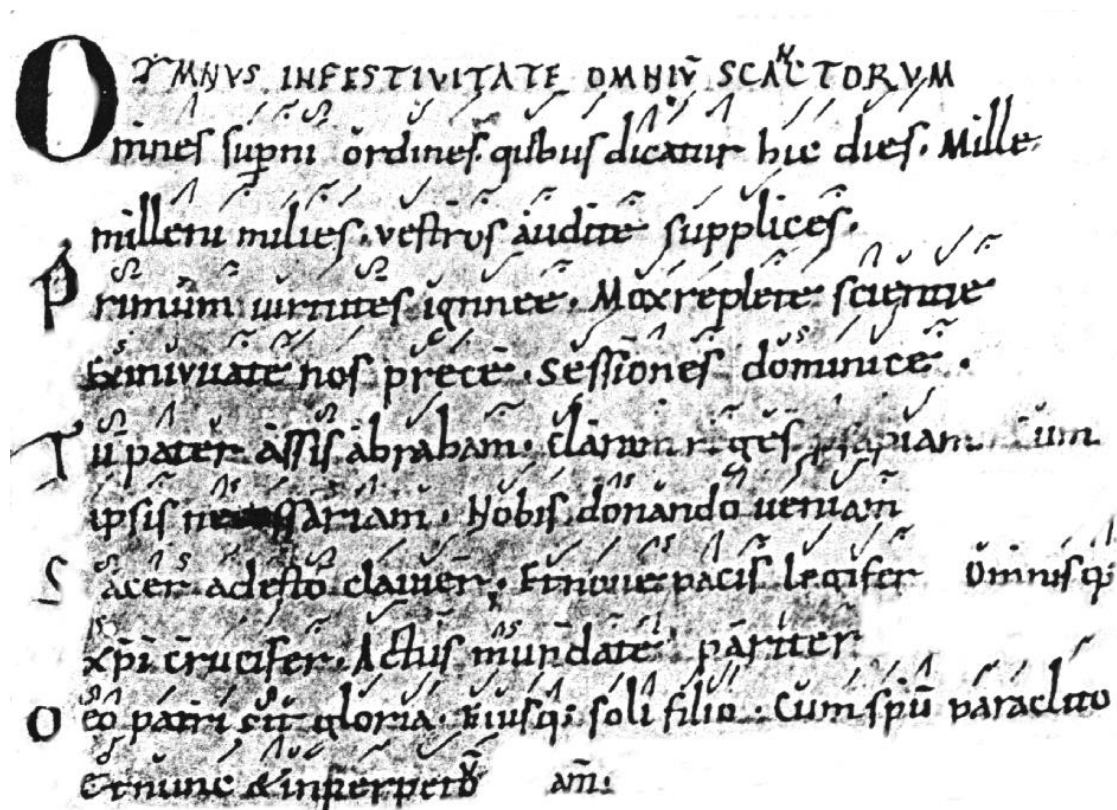 YMNVS IN FESTIVITATE OMNIŪ SCANCTORVM
Omnes sup̲ni ordines. quibus dicatur hic dies. Mille
milleni milies. vestros audite supplices.
Primum uirtutes ignee. Mox replete scientie
nos prece. Sessiones dominice.
Tu pater assis abraham. clarum piam cum
ipsis necessariam. Nobis donando ueniam
Sacer adesto clauiger. Et noue pacis legifer Omnisq;
xp̄i crucifer. Actus mundate pariter
Deo patri sit gloria. Eiusq; soli filio. Cum sp̄u paraclito
Et nunc & in perpetuū am̄.